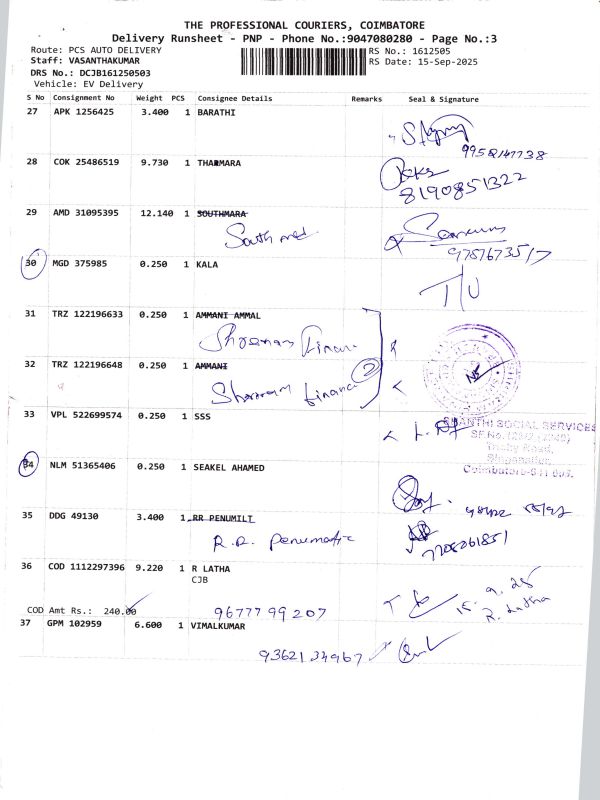 THE PROFESSIONAL COURIERS, COIMBATORE
Delivery Runsheet - PNP - Phone No.:9047080280 - Page No.:3
Route: PCS AUTO DELIVERY
RS No.: 1612505
Staff: VASANTHAKUMAR
RS Date: 15-Sep-2025
DRS No.: DCJB161250503
Vehicle: EV Delivery
S No Consignment No Weight PCS Consignee Details Remarks Seal & Signature
27 APK 1256425 3.400 1 BARATHI
28 COK 25486519 9.730 1 THARMARA
8190851322
29 AMD 31095395 12.140 1 SOUTHMARA
South med
30 MGD 375985 0.250 1 KALA
31 TRZ 122196633 0.250 1 AMMANI AMMAL
32 TRZ 122196648 0.250 1 AMMANI
2
33 VPL 522699574 0.250 1 SSS
SHANTHI SOCIAL SERVICES
Trichy Road,
Singanallur,
34 NLM 51365406 0.250 1 SEAKEL AHAMED
35 DDG 49130 3.400 1 RR PENUMILT
R.R. Penumatic
36 COD 1112297396 9.220 1 R LATHA
CJB
15.9.25
R. Latha
COD Amt Rs.: 240.00
9677799207
37 GPM 102959 6.600 1 VIMALKUMAR
9362134967